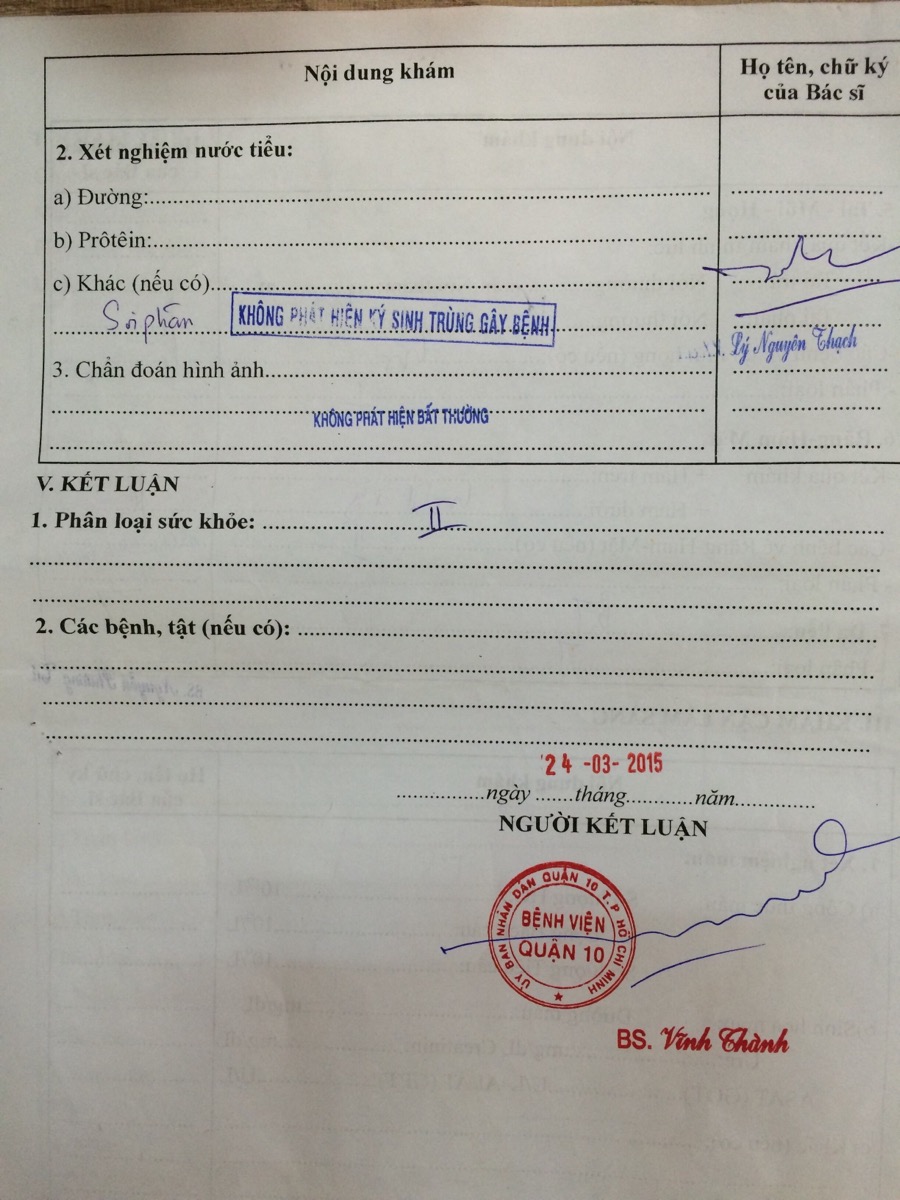 Nội dung khám
Họ tên, chữ ký
của Bác sĩ
2. Xét nghiệm nước tiểu:
a) Đường:
b) Prôtêin:
c) Khác (nếu có)
Soi phân KHÔNG PHÁT HIỆN KÝ SINH TRÙNG GÂY BỆNH
Lý Nguyên Thạch
3. Chẩn đoán hình ảnh
KHÔNG PHÁT HIỆN BẤT THƯỜNG
V. KẾT LUẬN
1. Phân loại sức khỏe: II
2. Các bệnh, tật (nếu có):
24 -03- 2015
ngày tháng năm
NGƯỜI KẾT LUẬN
ỦY BAN NHÂN DÂN QUẬN 10 T.P HỒ CHÍ MINH
BỆNH VIỆN
QUẬN 10
BS. Vĩnh Thành